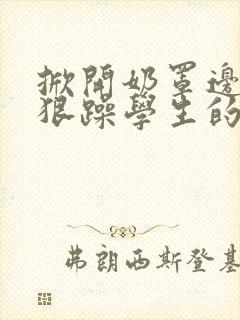 掀開奶罩邊
狠躁學生的
弗朗西斯登基